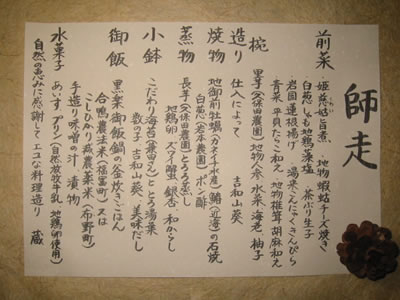 師走
前菜 姫慈姑旨煮 地物蝦蛄チーズ焼き
白葱 しゃも地鶏藻塩 茶ぶり生子
岩国蓮根揚げ 湯来こんにゃくきんぴら
青菜 平貝たらこ和え 地物椎茸 胡麻和え
椀 里芋(久保田農園) 地物人参 水菜 海老 柚子
造り 仕入によって 吉和山葵
焼物 地御前牡蠣(カネイチ水産) 鯛(近海)の石焼
白葱(岩本農園) ポン酢
蒸物 長芋(久保田農園)とろろ蒸し
地鶏卵 ズワイ蟹 銀杏 和からし
小鉢 こだわり海苔(兼田さん)ととろ湯葉
数の子 吉和山葵 美味だし
御飯 黒楽御飯鍋の釜炊きごはん
合鴨農法米(福富町)又は
こしひかり減農薬米(布野町)
手造り味噌の汁 漬物
水菓子 あいす プリン(自然放牧牛乳 地鶏卵使用)
自然の恵みに感謝してエコな料理造り 蔵